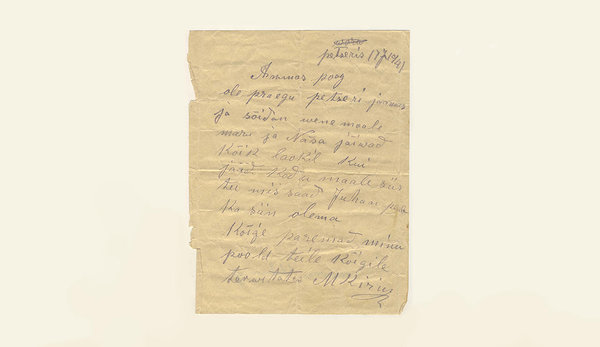 petseris 17 7 1941
Armas poeg
ole praegu petseri jaamas
ja sõidan wenemaale
mari ja Nasa jäiwad
Kõik laokil Kui
jääd Kodu maale siis
tee mis saad Juhan
Ka siin olema
Kõige paremad minu
poolt teile Kõigile
terwitates M Kirius